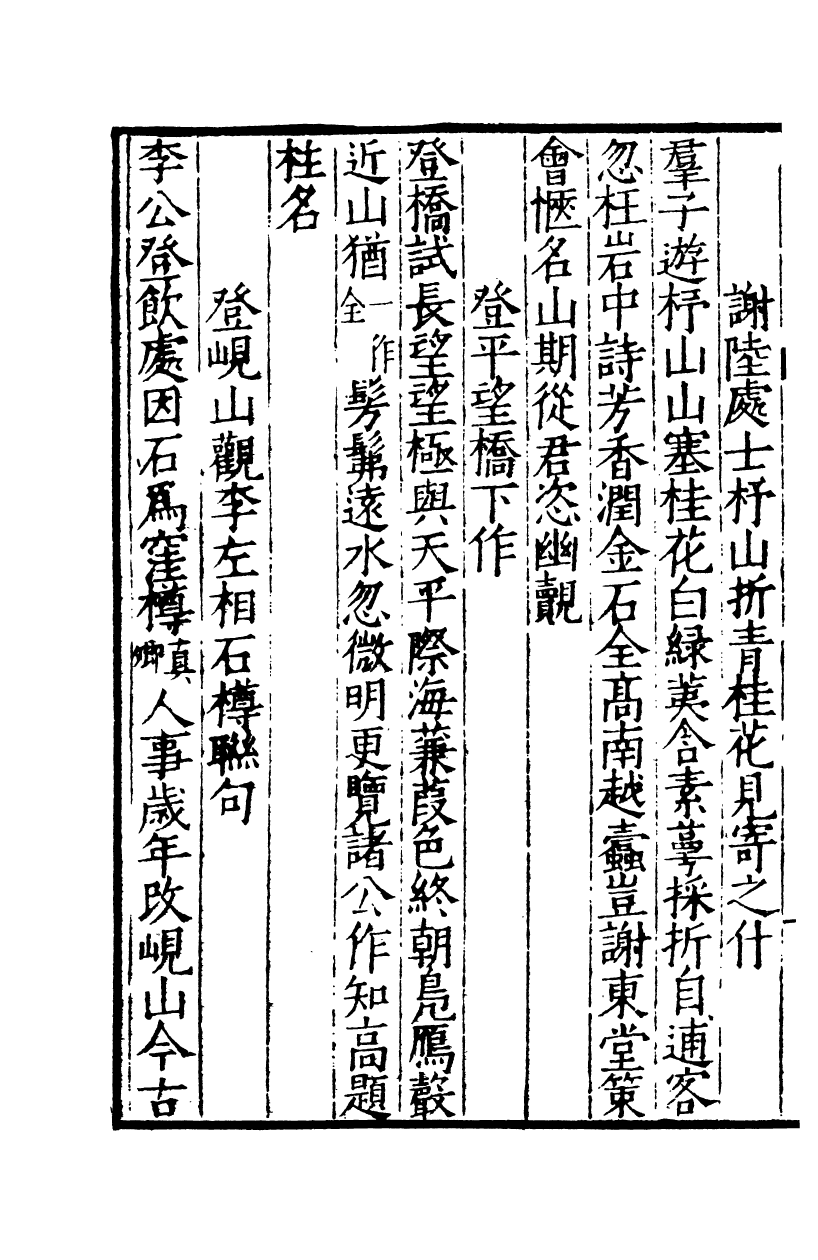 謝陸處士杼山折青桂花見寄之什
羣子遊杼山山寒桂花白緑荑含素萼採折自逋客
忽枉岩中詩芳香潤金石全髙南越蠹豈謝東堂策
會愜名山期從君恣幽覿
登平望橋下作
登橋試長望望極與天平際海蒹葭色終朝鳬鴈聲
近山猶一作全髣髴遠水忽微明更覽諸公作知高題
柱名
登峴山觀李左相石樽聯句
李公登飲處因石爲窪樽真卿人事歲年改峴山今古